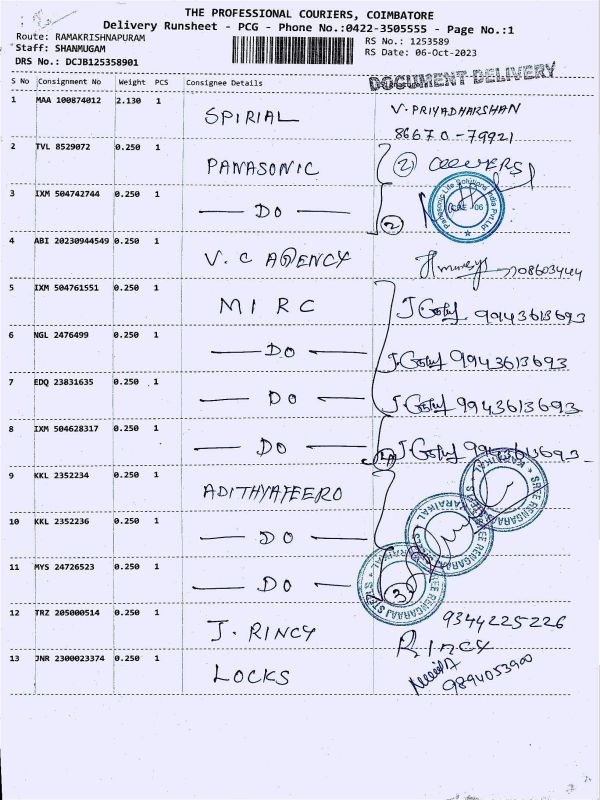 THE PROFESSIONAL COURIERS, COIMBATORE
Delivery Runsheet - PCG - Phone No.:0422-3505555 - Page No.:1
Route: RAMAKRISHNAPURAM
Staff: SHANMUGAM
DRS No.: DCJB125358901
RS No.: 1253589
RS Date: 06-Oct-2023
DOCUMENT DELIVERY
S No Consignment No Weight PCS Consignee Details
1 MAA 100874012 2.130 1 SPIRIAL V. PRIYADHARSHAN
86670-79921
2 TVL 8529072 0.250 1 PANASONIC 2 COVERS
3 IXM 504742744 0.250 1 DO 2
Panasonic Life Solutions India Pvt Ltd
4 ABI 20230944549 0.250 1 V. C AGENCY
5 IXM 504761551 0.250 1 MIRC 9943613693
6 NGL 2476499 0.250 1 DO 9943613693
7 EDQ 23831635 0.250 1 DO 9943613693
8 IXM 504628317 0.250 1 DO
9 KKL 2352234 0.250 1 ADITHYAJEERO
10 KKL 2352236 0.250 1 DO
11 MYS 24726523 0.250 1 DO 3
12 TRZ 205000514 0.250 1 J. RINCY 9344225226
Rincy
13 JNR 2300023374 0.250 1 LOCKS
9894053900